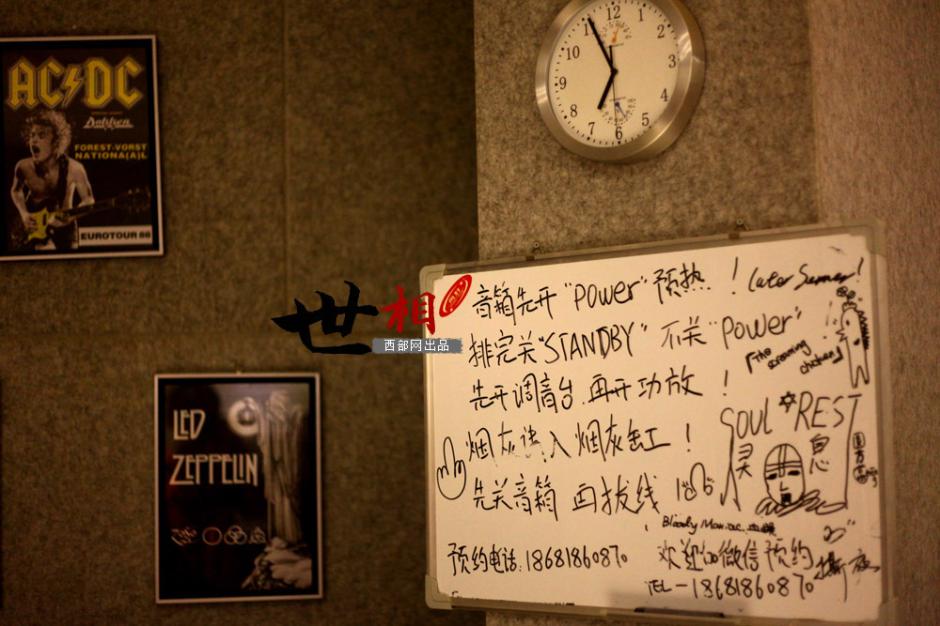 AC DC
Dokken
FOREST-VORST
NATIONA(A)L
EUROTOUR 86
LED
ZEPPELIN
12
1
2
3
4
5
6
7
8
9
10
11
世相
西部网出品
音箱先开"POWER"预热！
Later Summer!
排完关"STANDBY" 不关"POWER"
「The screaming chicken」
先开调音台.再开功放！
SOUL REST
灵 息
烟灰请入烟灰缸！
先关音箱 再拔线
Bloody
预约电话:18681860870
欢迎加微信预约
TEL-18681860870